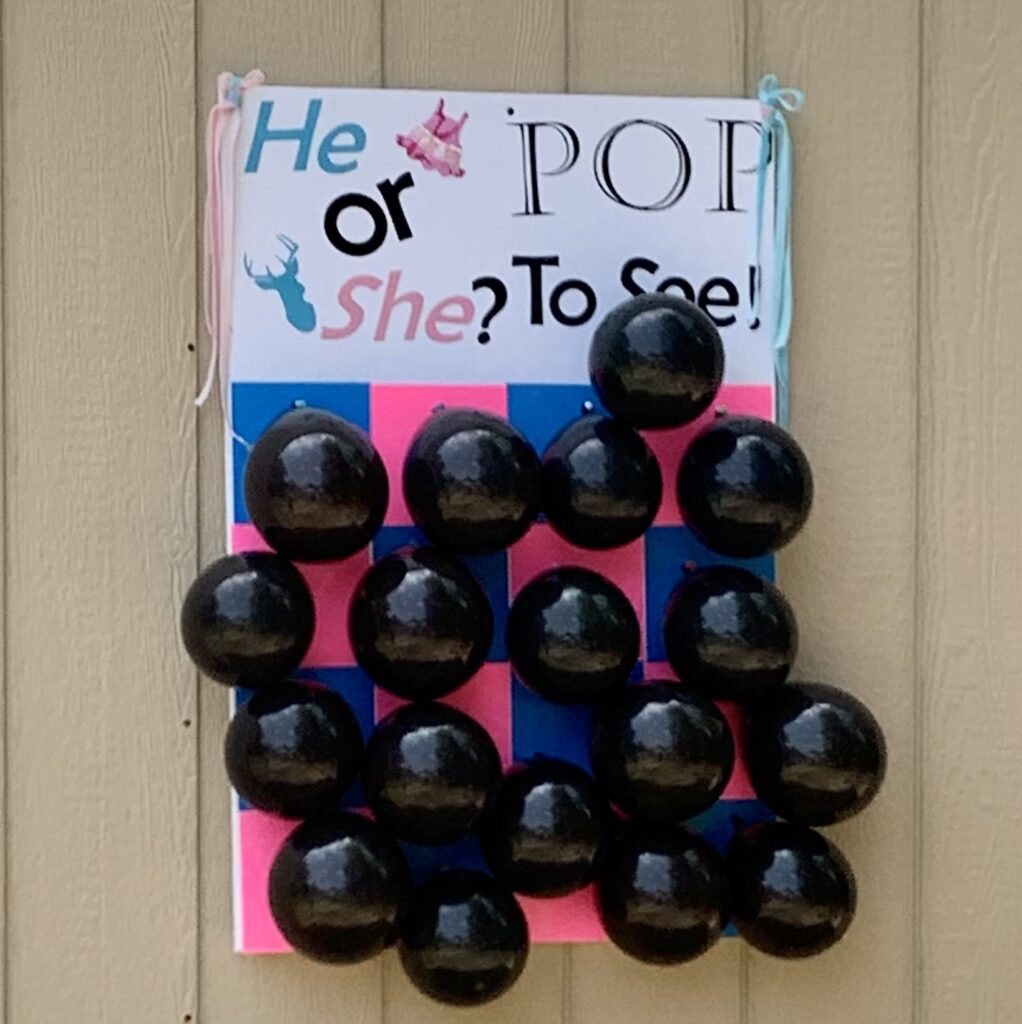 He
or
She?
POP
To See!